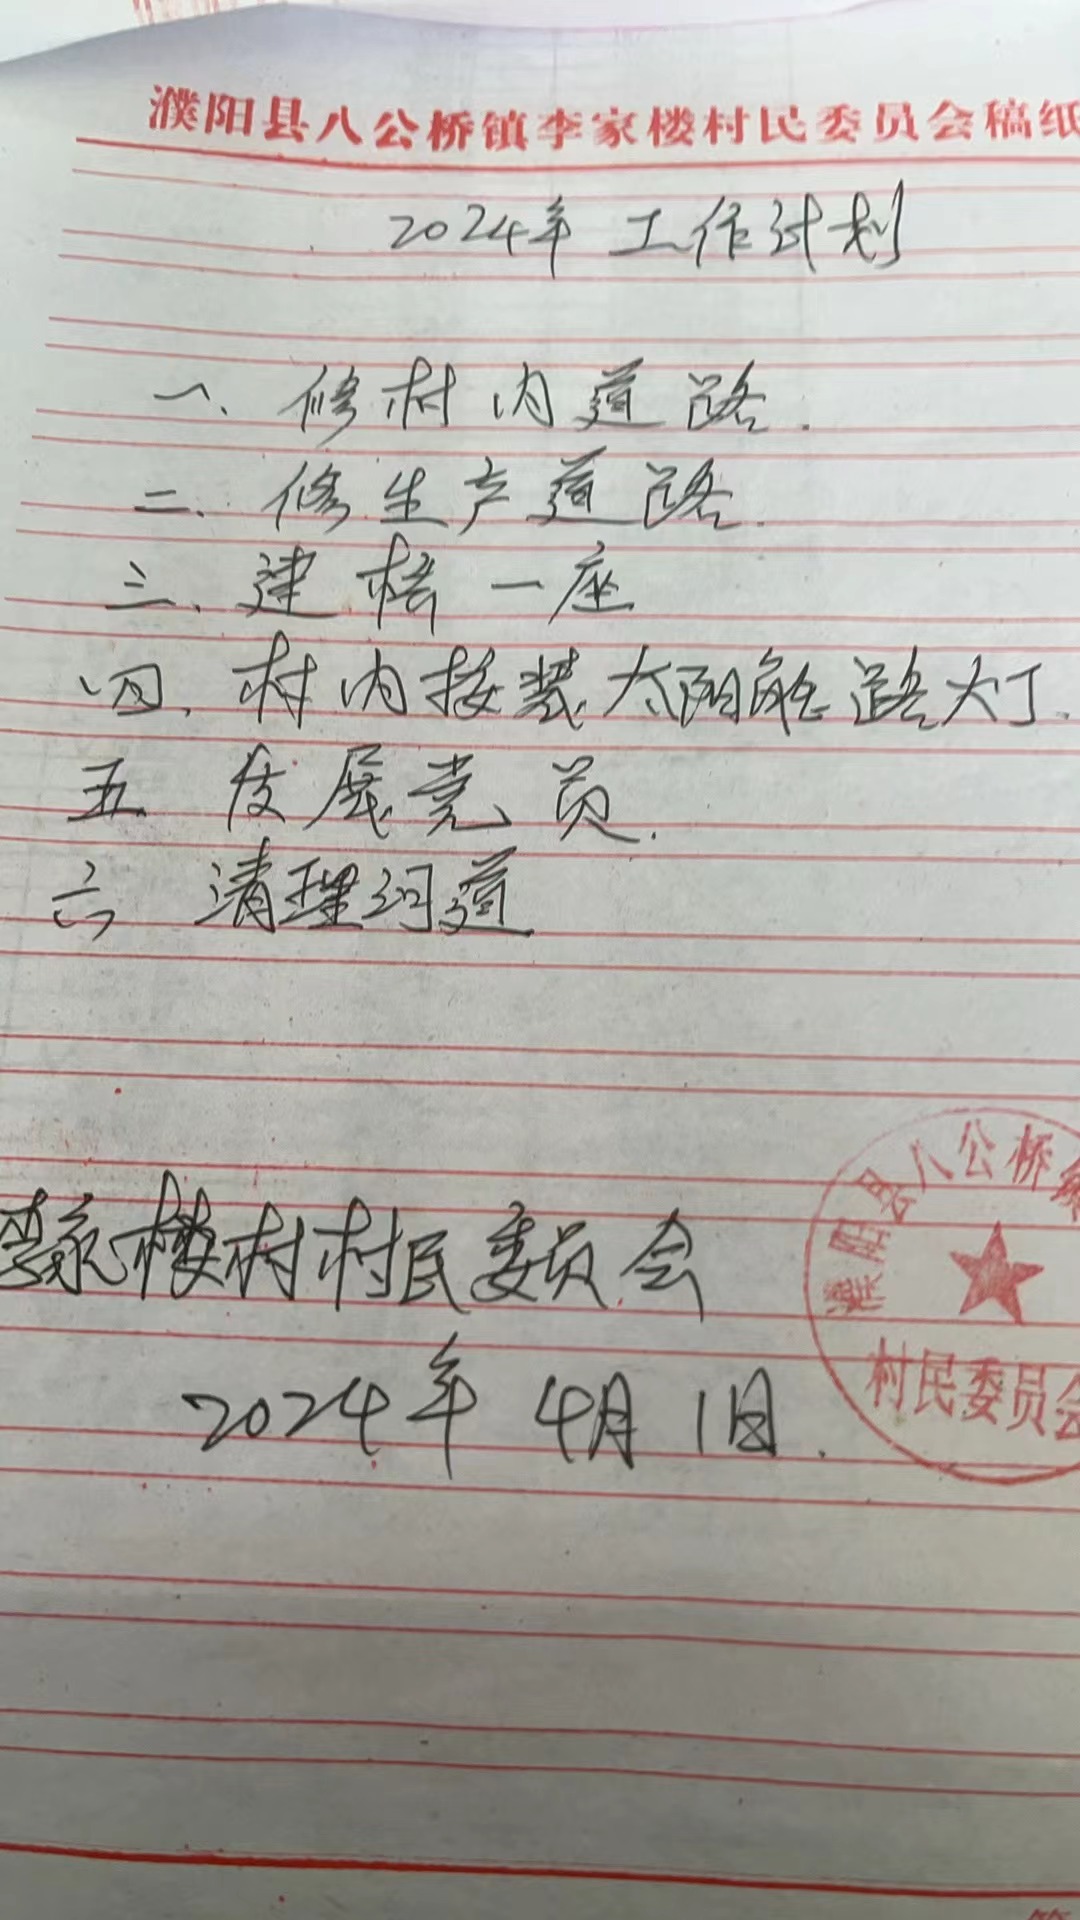 濮阳县八公桥镇李家楼村民委员会稿纸
2024年工作计划
一、修村内道路.
二、修生产道路.
三、建桥一座
四、村内按装太阳能路灯.
五、发展党员.
六 清理河道
李家楼村村民委员会
2024年4月1日.
濮阳县八公桥镇
村民委员会